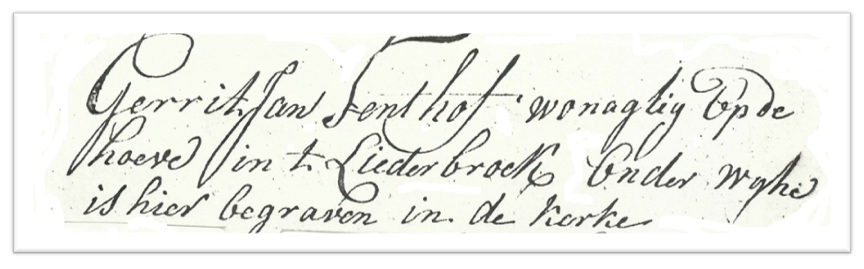 Gerrit Jan Tenthof wonagtig Op de
hoeve in t Liederbroek Onder wyhe
is hier begraven in de kerke